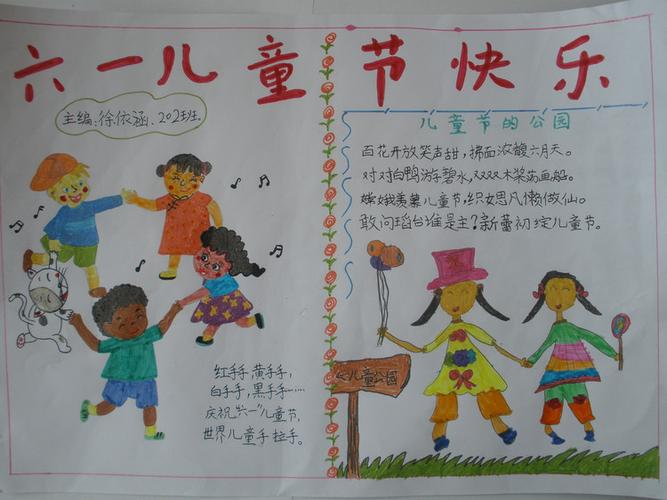 六一儿童节快乐
主编:徐依涵、202班。
红手手,黄手手,
白手手,黑手手……
庆祝"六一"儿童节,
世界儿童手拉手。
儿童节的公园
百花开放笑声甜,拂面浓馥六月天。
对对白鸭游碧水,双双木桨荡画船。
嫦娥羡慕儿童节,织女思凡懒做仙。
敢问瑶台谁是主!新蕾初绽儿童节。
儿童公园